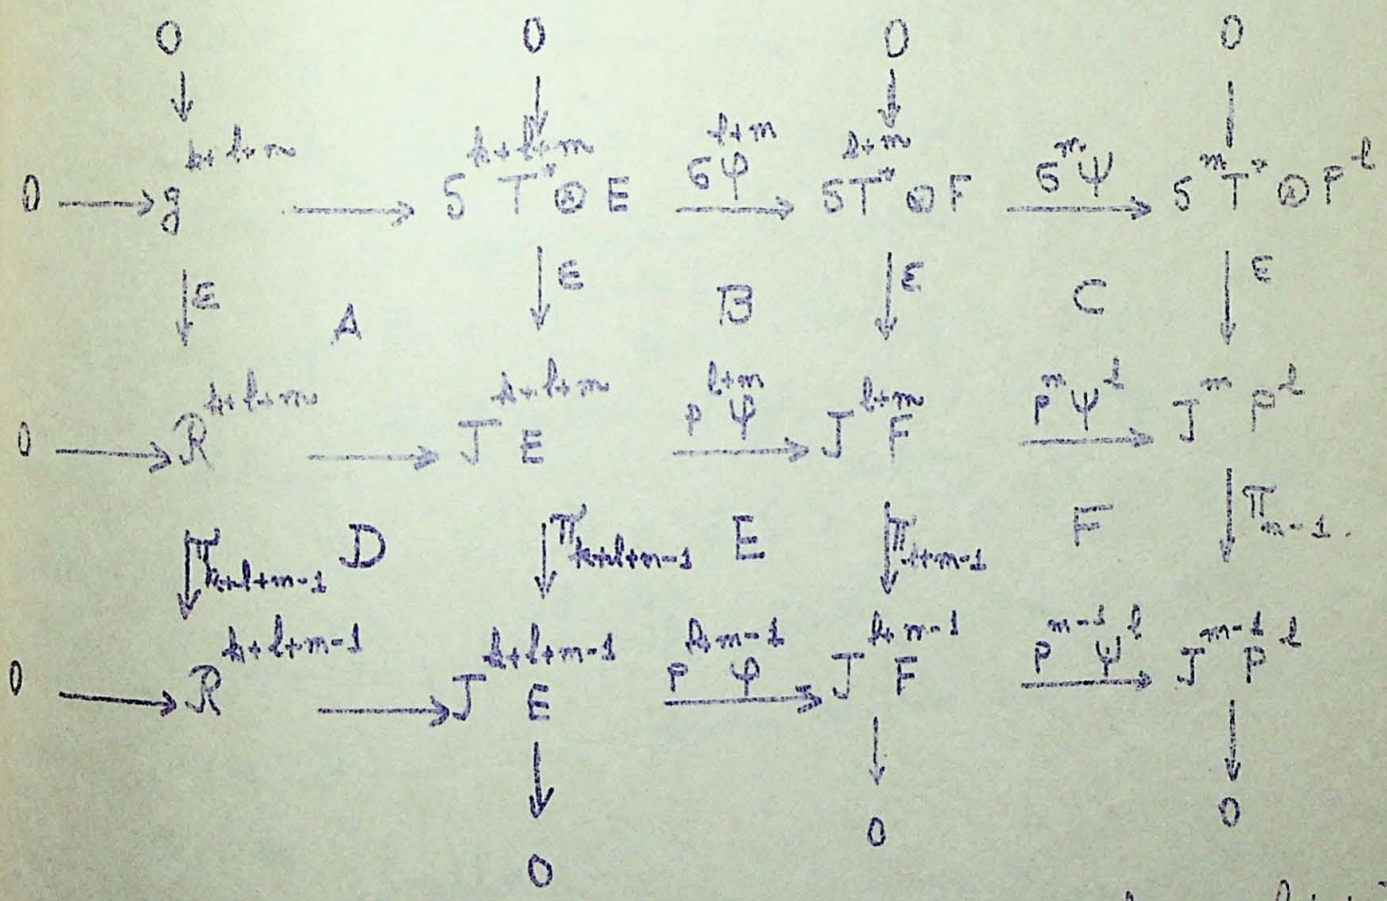 0 0 0 0
↓ ↓ ↓ ↓
0 → g^{k+l+m} → S^{k+l+m}T*⊗E →^{σ^{l+m}φ} S^{l+m}T*⊗F →^{σ^mΨ} S^mT*⊗P^l
↓ε A ↓ε B ↓ε C ↓ε
0 → R^{k+l+m} → J^{k+l+m}E →^{p^{l+m}φ} J^{l+m}F →^{p^mΨ^l} J^mP^l
↓π_{k+l+m-1} D ↓π_{k+l+m-1} E ↓π_{l+m-1} F ↓π_{m-1}.
0 → R^{k+l+m-1} → J^{k+l+m-1}E →^{p^{l+m-1}φ} J^{l+m-1}F →^{p^{m-1}Ψ^l} J^{m-1}P^l
↓ ↓ ↓
0 0 0